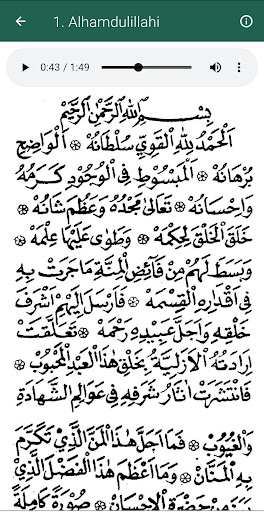 1. Alhamdulillahi
0:43 / 1:49
بِسْمِ اللهِ الرَّحْمٰنِ الرَّحِيْمِ
اَلْحَمْدُ لِلّٰهِ الْقَوِيِّ سُلْطَانُهُ ۞ اَلْوَاضِحِ
بُرْهَانُهُ ۞ اَلْمَبْسُوْطِ فِى الْوُجُوْدِ كَرَمُهُ
وَاِحْسَانُهُ ۞ تَعَالَى مَجْدُهُ وَعَظُمَ شَانُهُ ۞
خَلَقَ الْخَلْقَ لِحِكْمَهْ ۞ وَطَوٰى عَلَيْهَا عِلْمَهْ ۞
وَبَسَطَ لَهُمْ مِنْ فَآئِضِ الْمِنَّةِ مَا جَرَتْ بِهِ
فِى اَقْدَارِهِ الْقِسْمَهْ ۞ فَاَرْسَلَ اِلَيْهِمْ اَشْرَفَ
خَلْقِهِ وَاَجَلَّ عَبِيْدِهِ رَحْمَهْ ۞ تَعَلَّقَتْ
اِرَادَتُهُ الْاَزَلِيَّةُ بِخَلْقِ هٰذَا الْعَبْدِ الْمَحْبُوْبِ ۞
فَانْتَشَرَتْ اٰثَارُ شَرَفِهِ فِى عَوَالِمِ الشَّهَادَةِ
وَالْغُيُوْبِ ۞ فَمَا اَجَلَّ هٰذَا الْمَنَّ الَّذِيْ تَكَرَّمَ
بِهِ الْمَنَّانُ ۞ وَمَا اَعْظَمَ هٰذَا الْفَضْلَ الَّذِيْ
بَرَزَ مِنْ حَضْرَةِ الْاِحْسَانِ ۞ صُوْرَةً كَامِلَةً